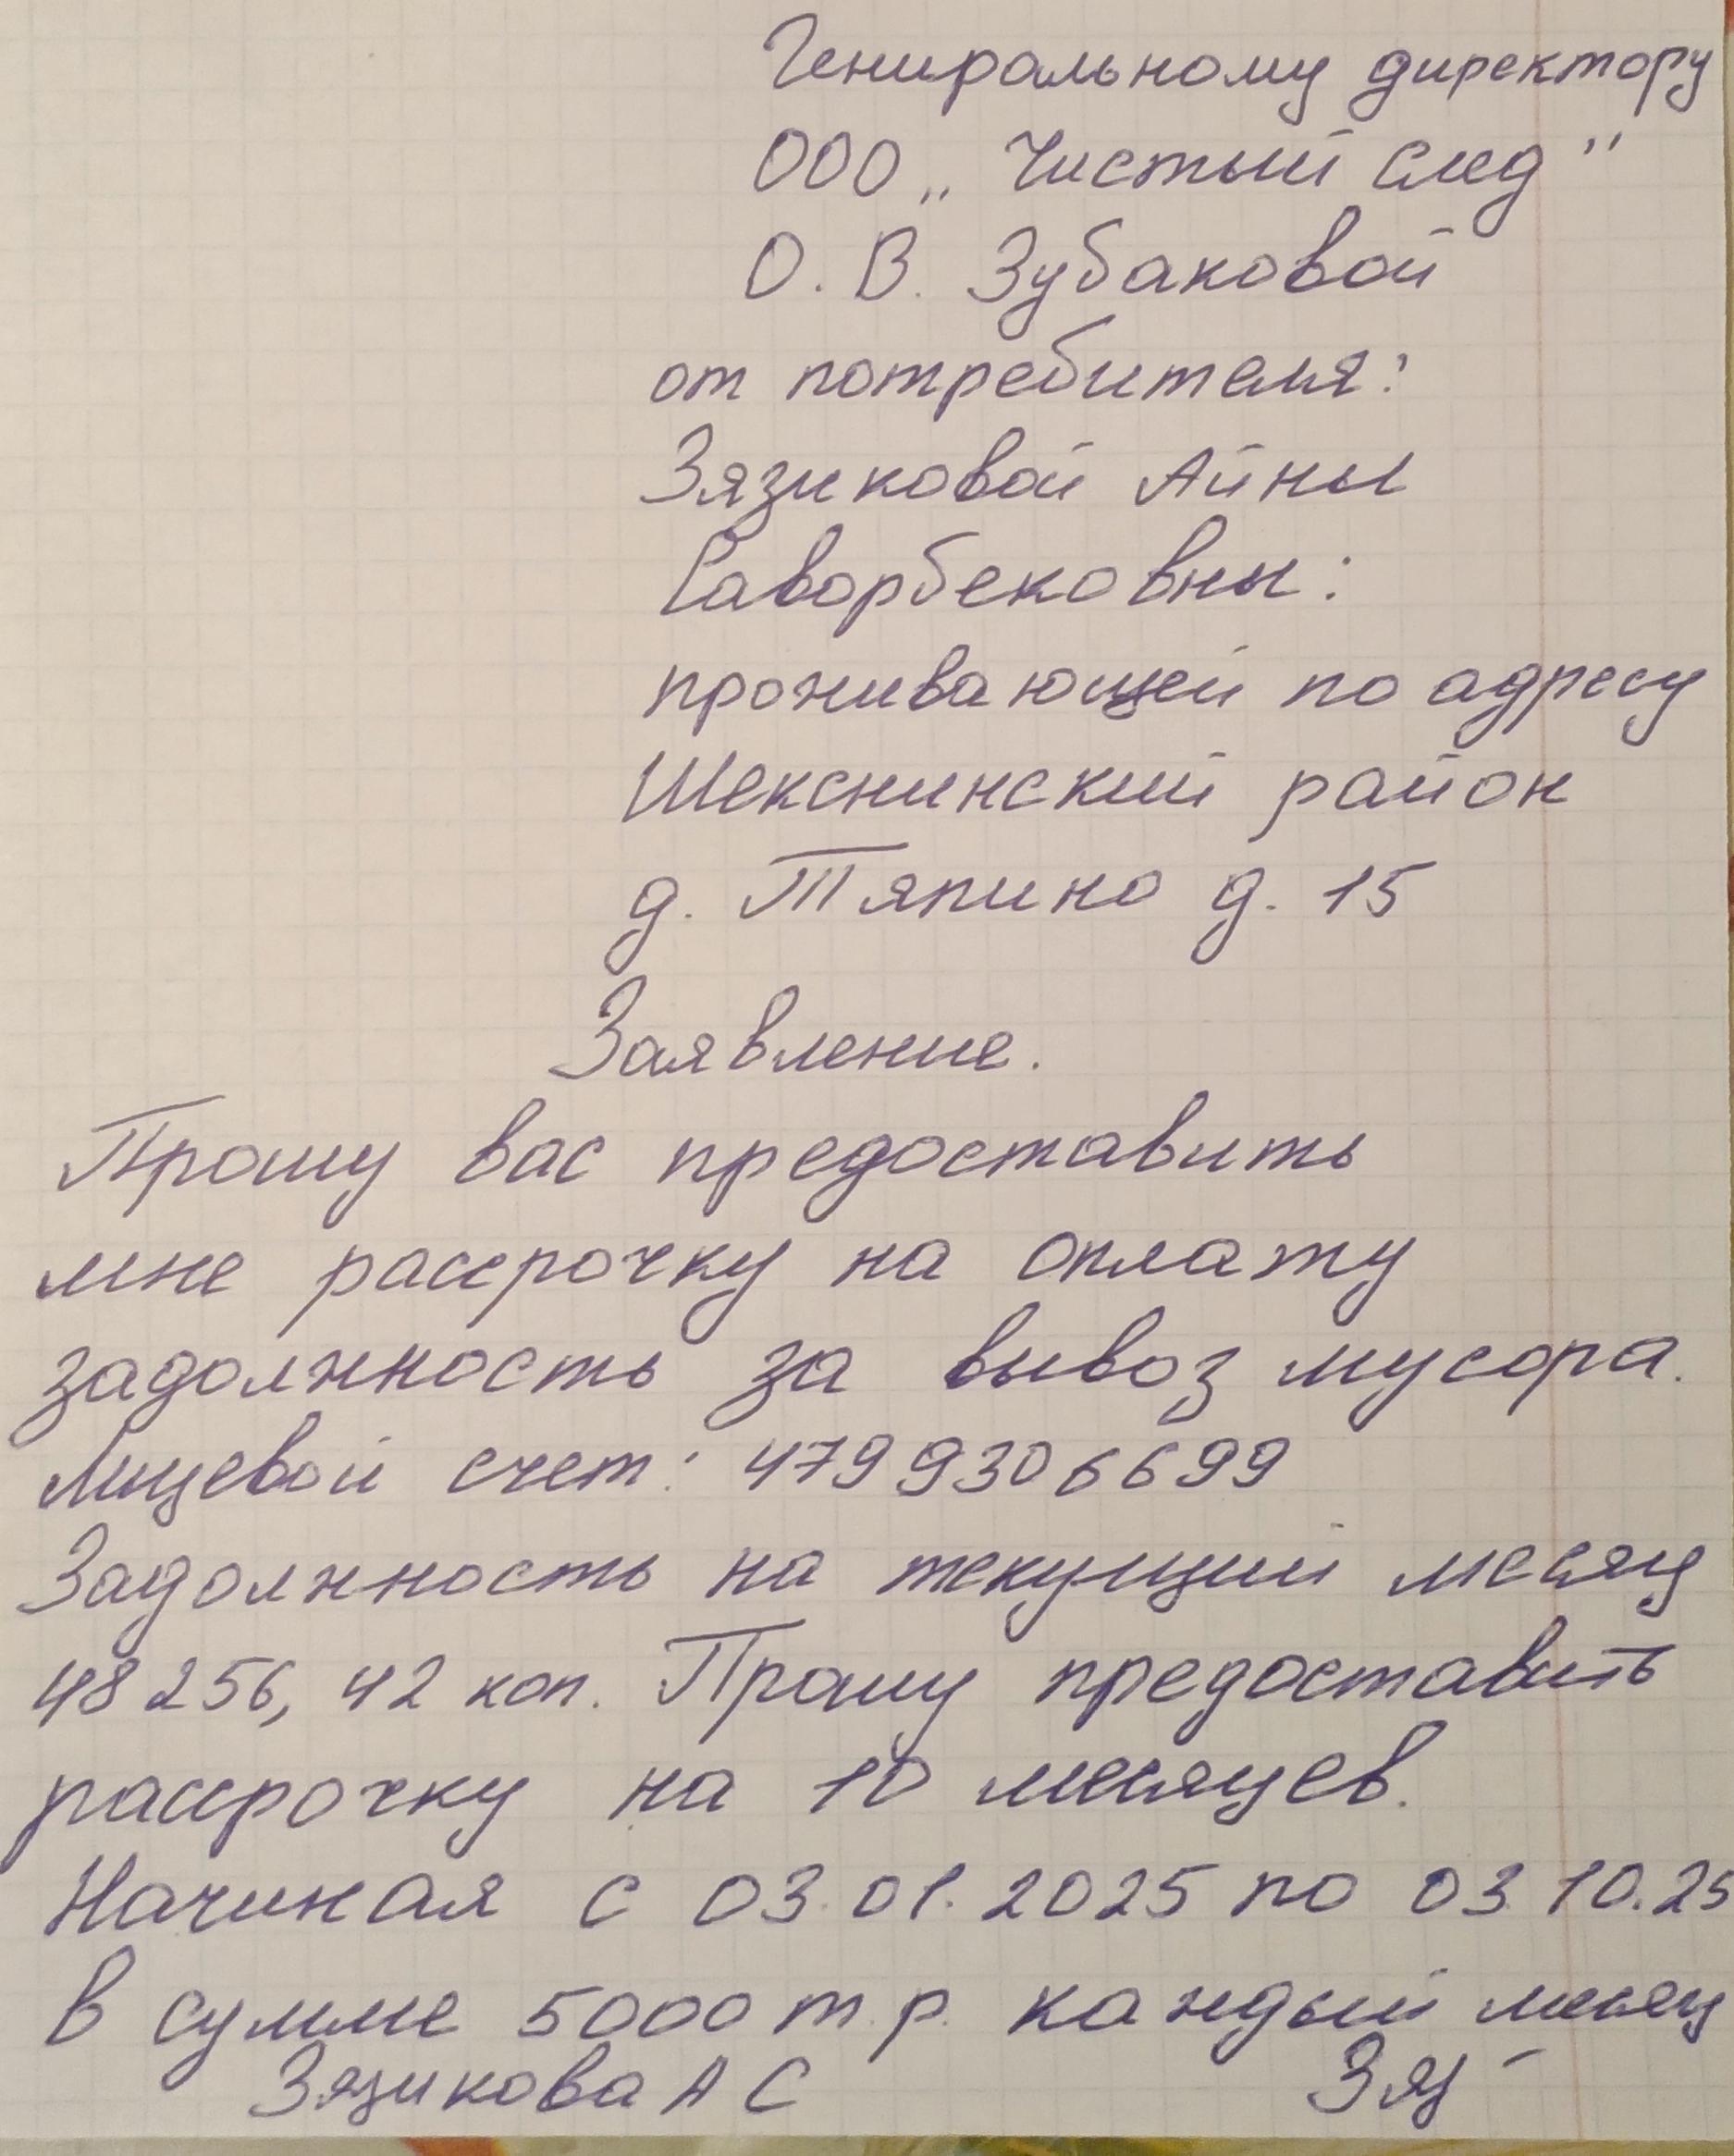 Гениральному директору
ООО „Чистый след"
О. В. Зубаковой
от потребителя:
Зязиковой Айны
Саворбековны:
проживающей по адресу
Шекснинский район
д. Тяпино д. 15
Заявление.
Прошу вас предоставить
мне рассрочку на оплату
задолжность за вывоз мусора.
Лицевой счет: 4799306699
Задолжность на текущий месяц
48256, 42 коп. Прошу предоставить
рассрочку на 10 месяцев.
Начиная с 03.01.2025 по 03.10.25
в сумме 5000 т.р. каждый месяц
Зязикова А С Зяз